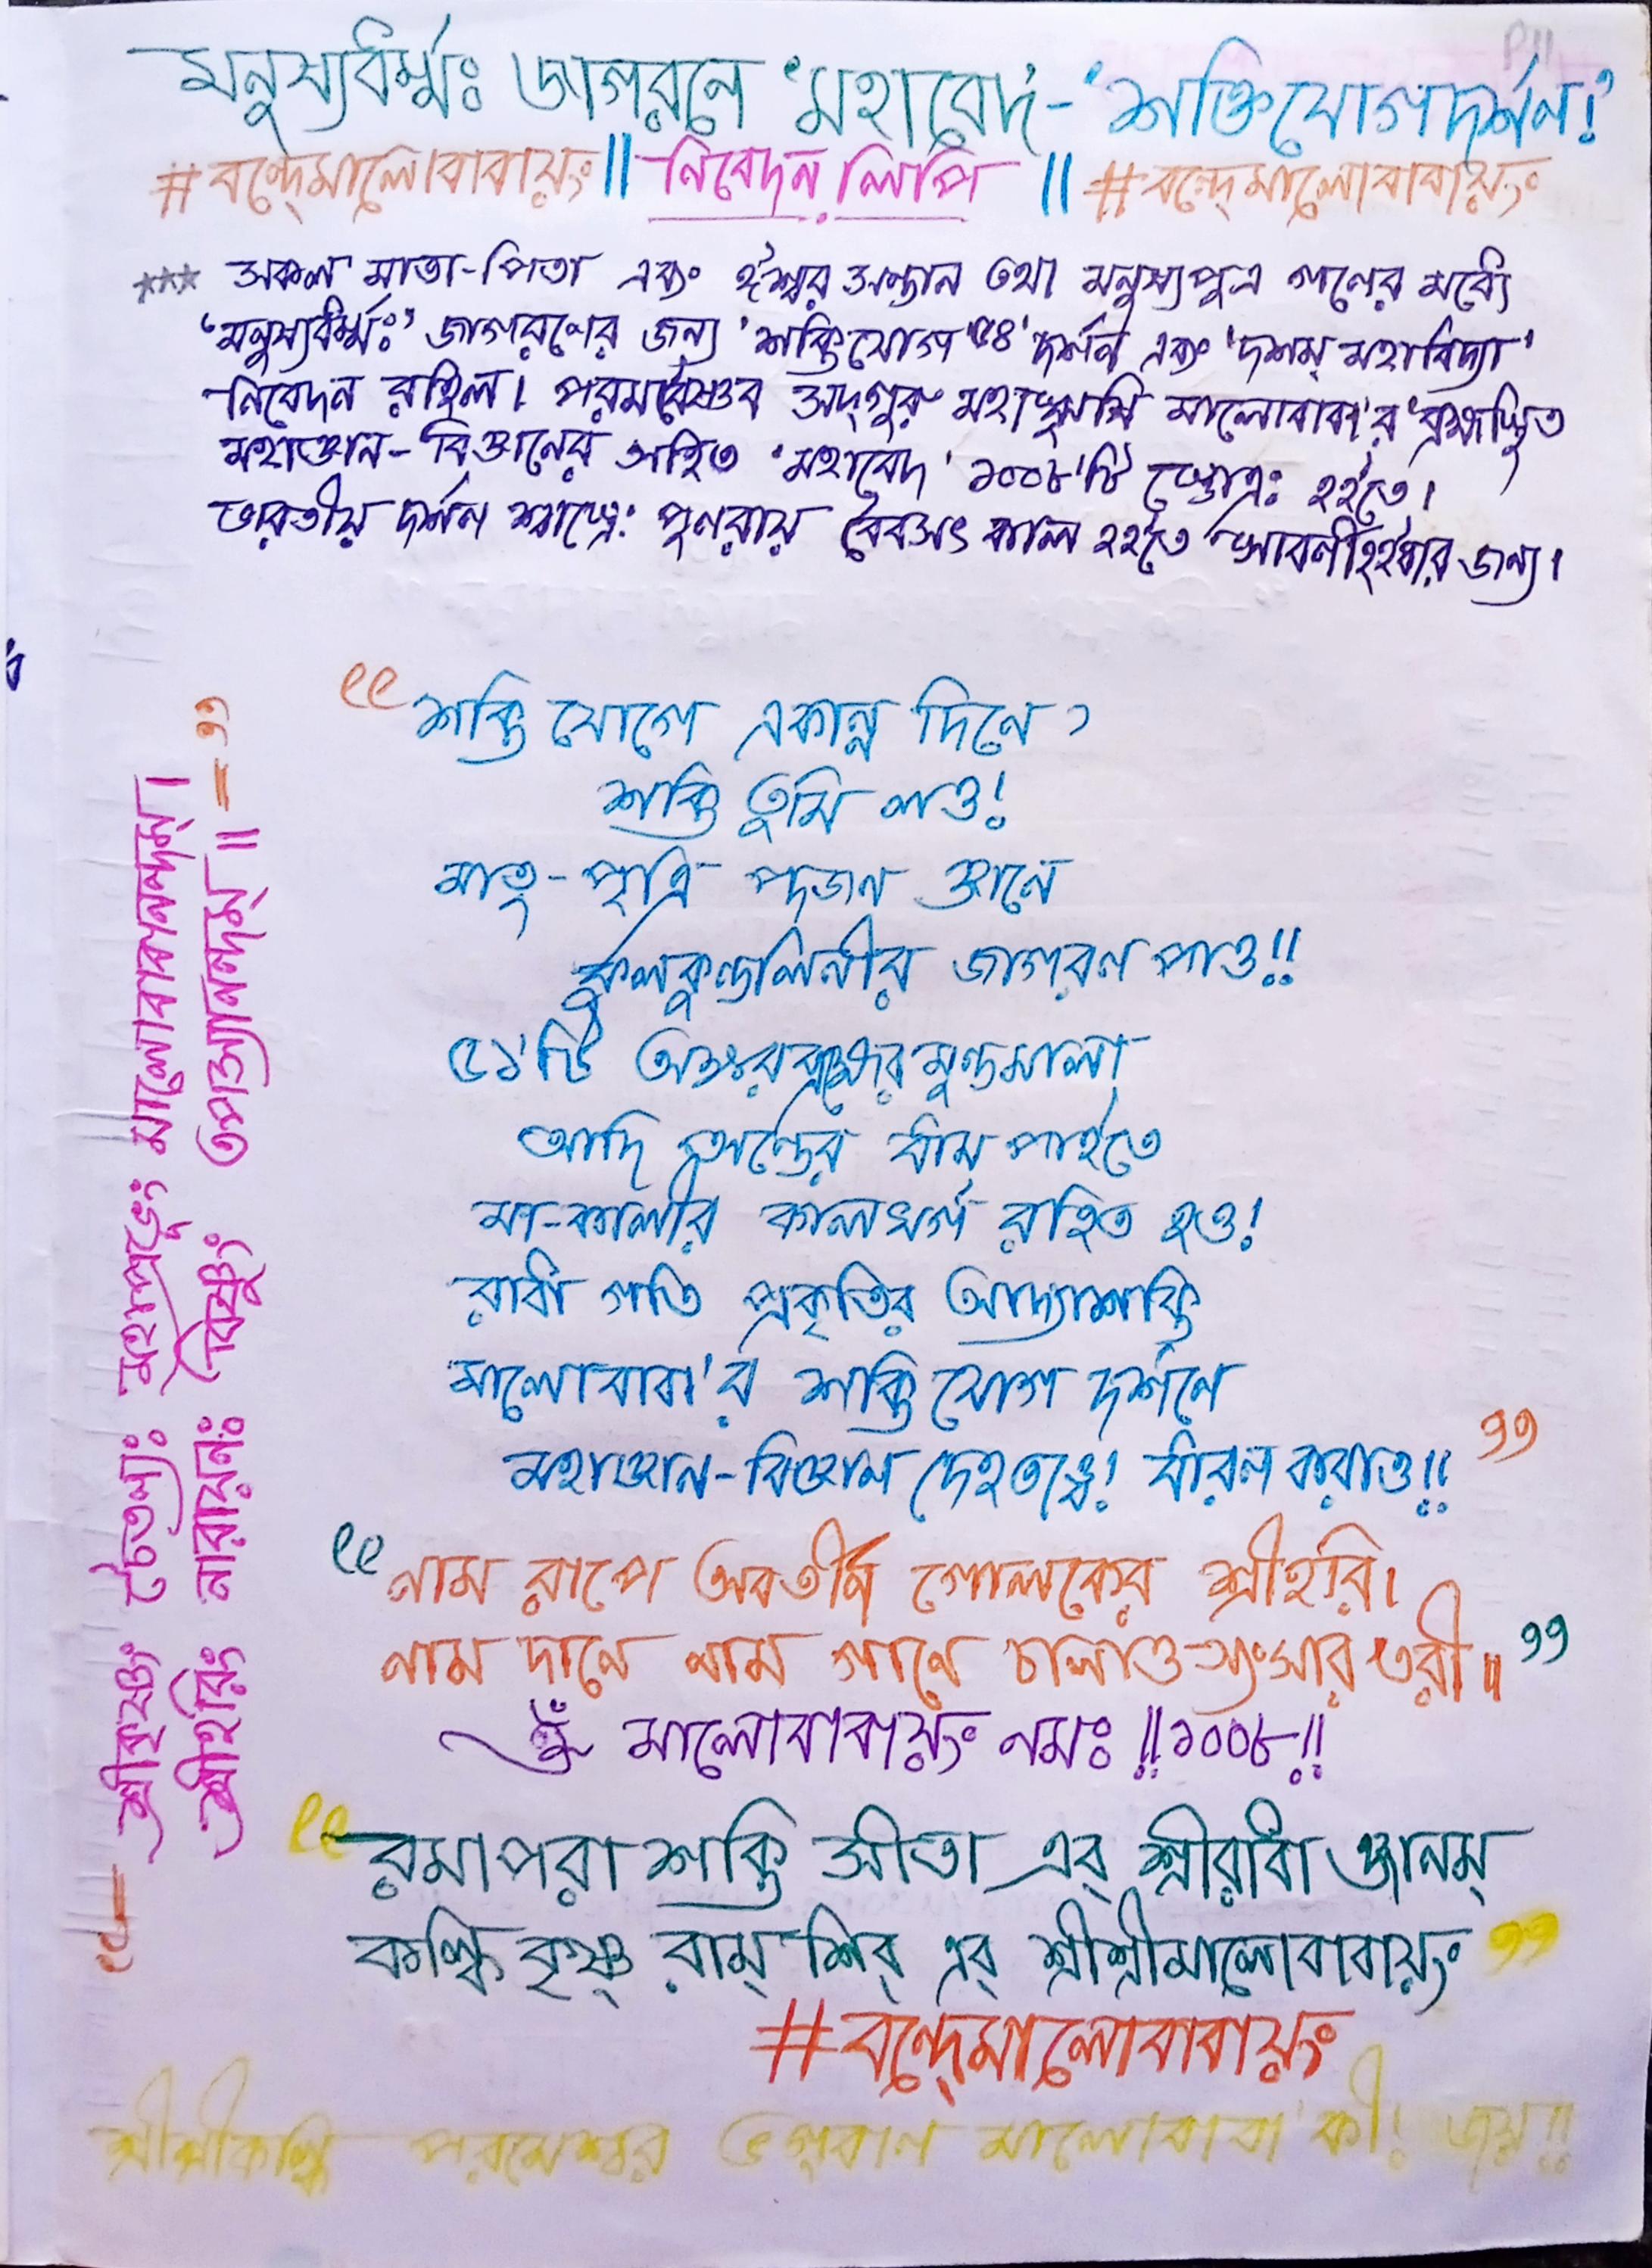 মনুষ্যধর্ম্মঃ জাগরনে 'মহাবেদ'-'শক্তিযোগদর্শন!'
#বন্দেমালোবাবায়ং॥ নিবেদন লিপি ॥ #বন্দেমালোবাবায়ং
*** সকল মাতা-পিতা এবং ঈশ্বর সন্তান তথা মনুষ্যপুত্র গনের মধ্যে
'মনুষ্যধর্ম্মঃ' জাগরণের জন্য 'শক্তিযোগ '৫৪' দর্শন এবং 'দশম্ মহাবিদ্যা'
নিবেদন রহিল। পরমবৈষ্ণব সদ্গুরু মহাঋষি মালোবাবা'র
মহাজ্ঞান-বিজ্ঞানের সহিত 'মহাবেদ' ১০০৮'টি স্তোত্রঃ হইতে।
ভারতীয় দর্শন শাস্ত্রেঃ পুণরায় বৈবসৎ কাল হইতে জন্য।
“শক্তি যোগে একান্ন দিনে,
শক্তি তুমি লও!
মাতৃ-পৃত্রি পদজন জ্ঞানে
কুলকুন্ডলিনীর জাগরণ পাও!!
৫১'টি অক্ষরব্রহ্মের মুন্ডমালা
আদি অন্তের ধাম্ পাইতে
মা-কালীর কালখর্গ রহিত হও!
রাধা গতি প্রকৃতির আদ্যাশক্তি
মালোবাবা'র শক্তি যোগ দর্শনে
মহাজ্ঞান-বিজ্ঞান দেহতত্ত্বে! ধারণ করাও!!”
“নাম রূপে অবতীর্ণ গোলকের শ্রীহরি।
নাম দানে নাম গানে চালাও সংসার তরী॥”
ওঁ মালোবাবায়ং নমঃ !!১০০৮!!
“রমাপরা শক্তি সীতা এব্ শ্রীরাধা জ্ঞানম্
কল্কি কৃষ্ণ্ রাম্ শিব্ এব্ শ্রীশ্রীমালোবাবায়ং”
#বন্দেমালোবাবায়ং
শ্রীশ্রীকল্কি পরমেশ্বর ভগবান মালোবাবা কী! জয়!!
“— শ্রীকৃষ্ণং চৈতন্যঃ মহাপ্রভুং মালোবাবানন্দম্।
শ্রীহরিং নারায়নঃ বিষ্ণুং তপস্যানন্দম্॥ —”